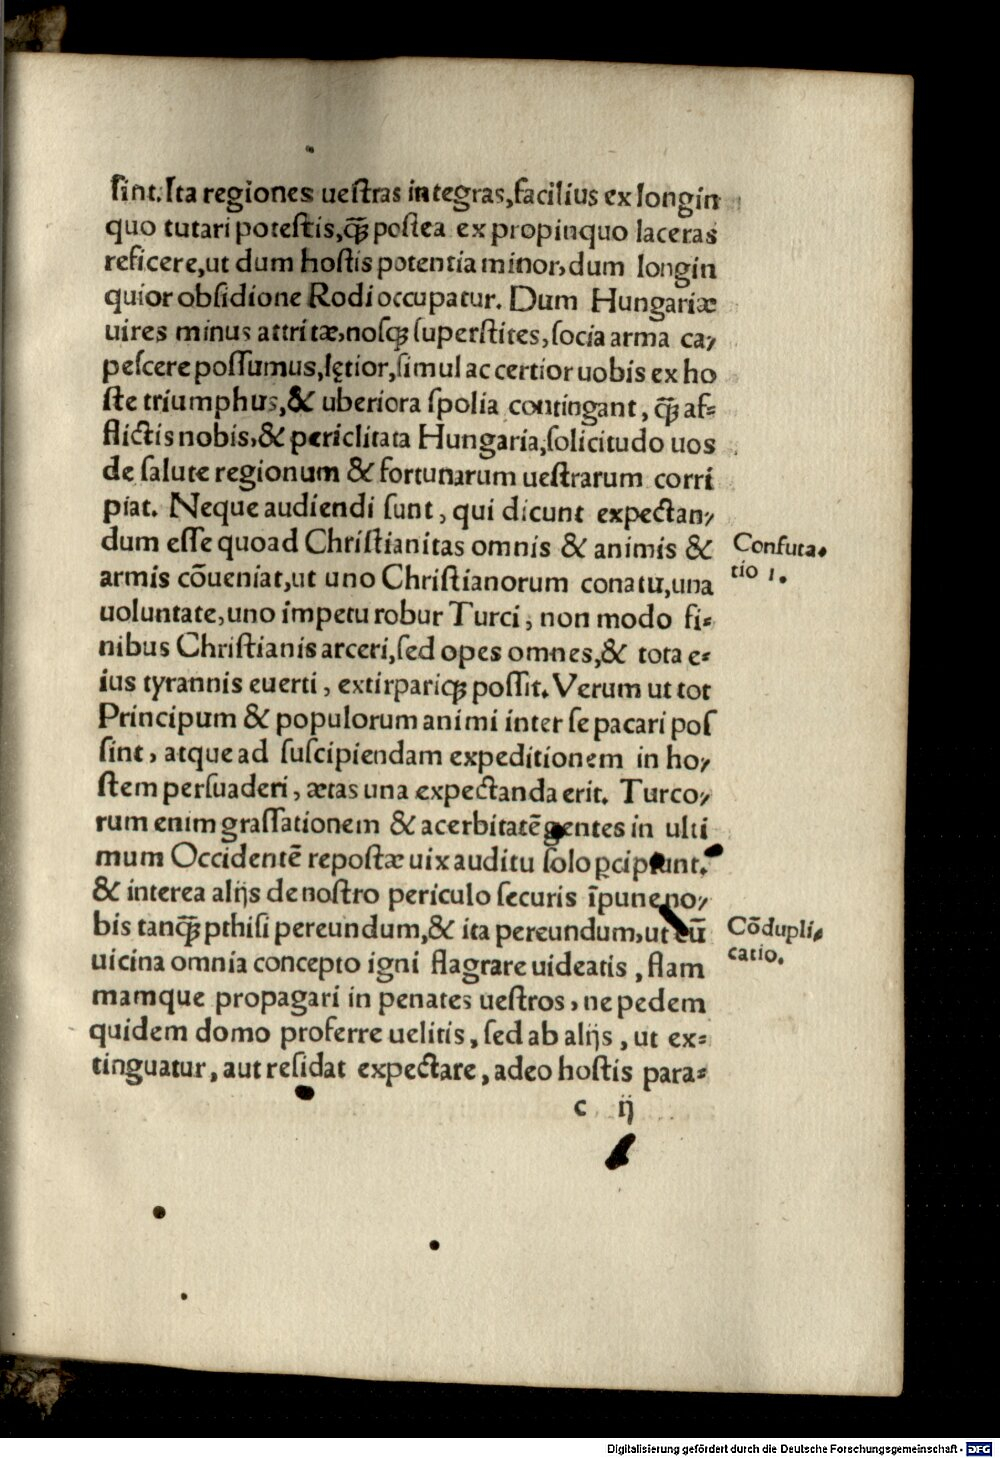 ſint. Ita regiones ueſtras integras, facilius ex longin
quo tutari poteſtis, q̄ꝫ poſtea ex propinquo laceras
reficere, ut dum hoſtis potentia minor, dum longin
quior obſidione Rodi occupatur. Dum Hungariæ
uires minus attritæ, noſqꝫ ſuperſtites, ſocia arma ca,
peſcere poſſumus, lętior, ſimul ac certior uobis ex ho
ſte triumphus, & uberiora ſpolia contingant, q̄ꝫ af⸗
flictis nobis, & periclitata Hungaria, ſolicitudo uos
de ſalute regionum & fortunarum ueſtrarum corri
piat. Neque audiendi ſunt, qui dicunt expectan,
dum eſſe quoad Chriſtianitas omnis & animis &
Confuta⸗
armis cōueniat, ut uno Chriſtianorum conatu, una
tio 1.
uoluntate, uno impetu robur Turci, non modo fi⸗
nibus Chriſtianis arceri, ſed opes omnes, & tota e⸗
ius tyrannis euerti, extirpariqꝫ poſſit. Verum ut tot
Principum & populorum animi inter ſe pacari poſ
ſint, atque ad ſuſcipiendam expeditionem in ho,
ſtem perſuaderi, ætas una expectanda erit. Turco,
rum enim graſſationem & acerbitatē gentes in ulti
mum Occidentē repoſtæ uix auditu ſolo ꝑcipiunt.
& interea alijs de noſtro periculo ſecuris īpune no,
bis tanq̄ꝫ pthiſi pereundum, & ita pereundum, ut cū
Cōdupli⸗
uicina omnia concepto igni flagrare uideatis, flam
catio.
mamque propagari in penates ueſtros, ne pedem
quidem domo proferre uelitis, ſed ab alijs, ut ex⸗
tinguatur, aut reſidat expectare, adeo hoſtis para⸗
c ij
Digitalisierung gefördert durch die Deutsche Forschungsgemeinschaft - DFG